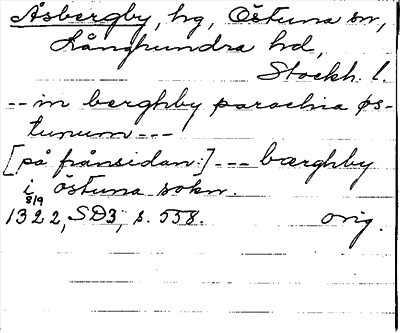 Åsbergby, hg, Östuna sn,
Långhundra hd,
Stockh. l.
-- in berghby parochia øs-
tunum ---
[på frånsidan:] --- bærghby
i östuna sokn.
8/9
1322, SD3, s. 558. orig.